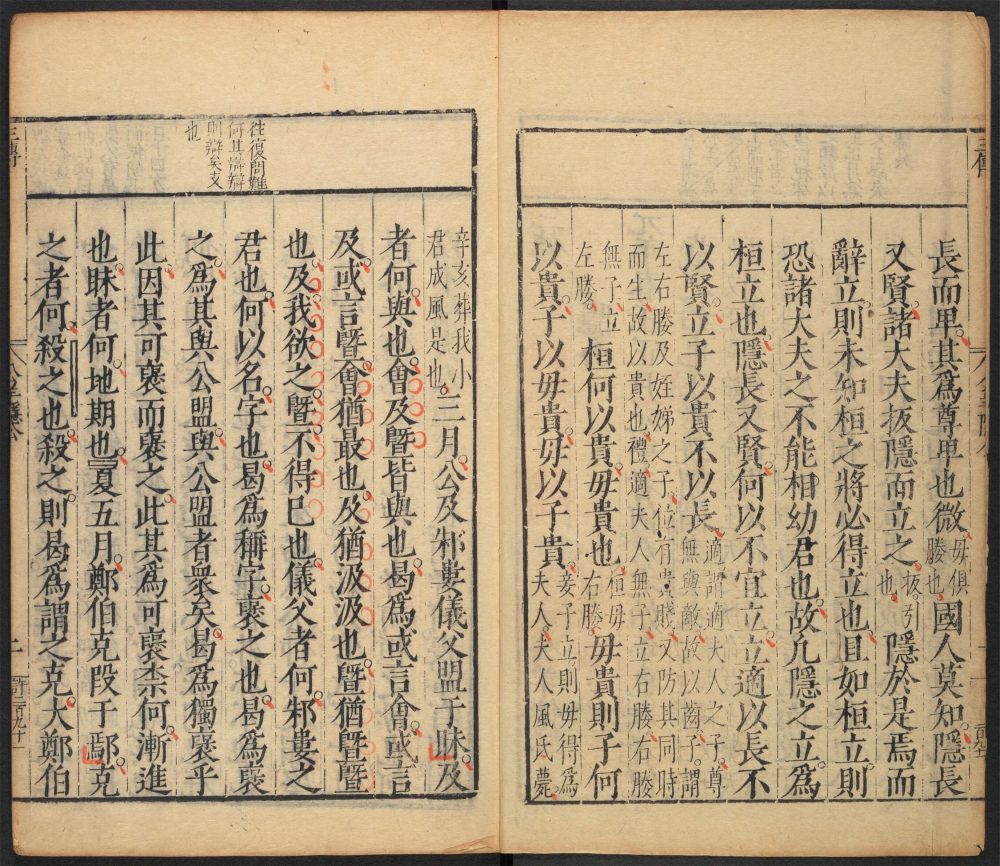 長而卑其爲尊卑也微母俱媵也國人莫知隱長
又賢諸大夫扳隱而立之扳引也隱於是焉而
辭立則未知桓之將必得立也且如桓立則
恐諸大夫之不能相幼君也故凡隱之立爲
桓立也隱長又賢何以不宜立立適以長不
以賢立子以貴不以長適謂適夫人之子尊無與敵故以齒子謂
左右媵及姪娣之子位有貴賤又防其同時
而生故以貴也禮適夫人無子立右媵右媵
無子立左媵桓何以貴母貴也桓母右媵母貴則子何
以貴子以母貴母以子貴妾子立則母得爲夫人夫人風氏薨
辛亥葬我小君成風是也三月公及邾婁儀父盟于眜及
者何與也會及曁皆與也曷爲或言會或言
及或言曁會猶最也及猶汲汲也曁猶曁曁
也及我欲之曁不得已也儀父者何邾婁之
君也何以名字也曷爲稱字褒之也曷爲褒
之爲其與公盟與公盟者衆矣曷爲獨褒乎
此因其可褒而褒之此其爲可褒柰何漸進
也眜者何地期也夏五月鄭伯克段于鄢克
之者何殺之也殺之則曷爲謂之克大鄭伯
往復問難
何其辯辯
則辯矣支
也